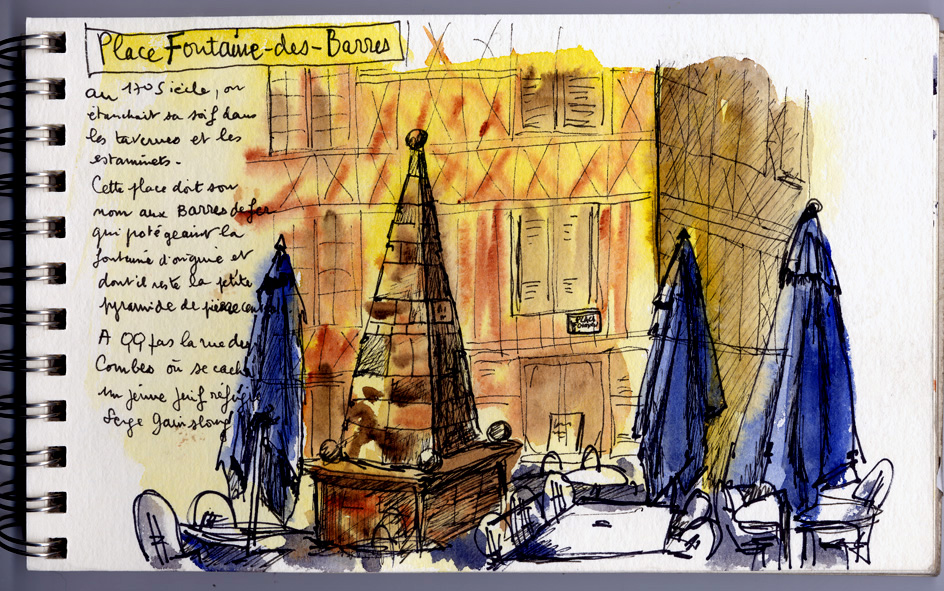 Place Fontaine-des-Barres
au 17° Siècle, on
étanchait sa soif dans
les tavernes et les
estaminets.
Cette place doit son
nom aux Barres de fer
qui potégeaint la
fontaine d'origine et
dont il reste la petite
pyramide de pierre
A QQ pas la rue des
Combes où se cacha
un jeune juif réfugié
Serge Gainsbourg
PLACE